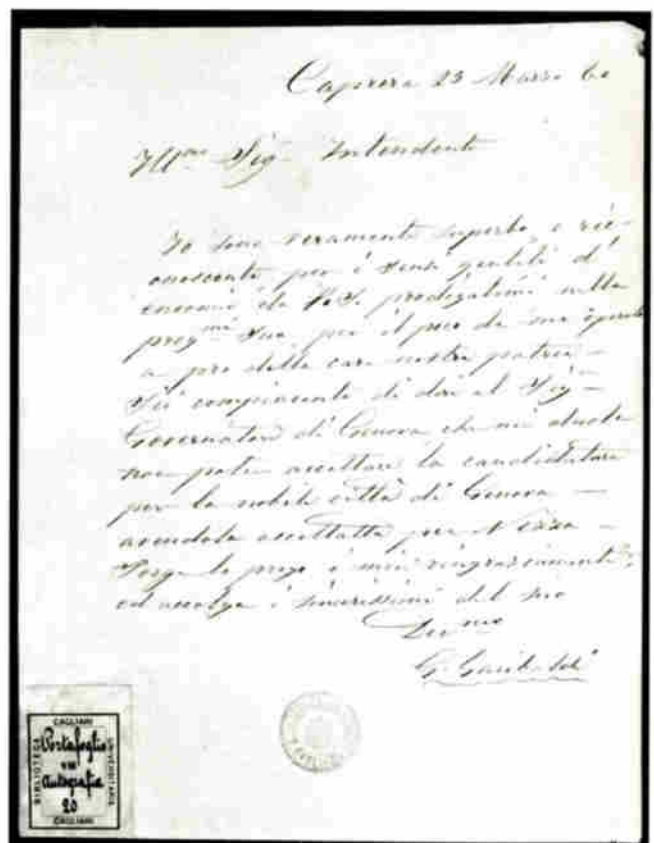 Caprera 23 Marzo 60
Ill.mo Sig. Intendente
Io sono veramente superbo, e rico-
noscente per i sensi gentili d'
encomii da V.S. prodigatimi nella
preg.ma Sua, per il poco da me operato
a pro della cara nostra patria —
Sii compiacente di dire al Sig.
Governatore di Genova che mi duole
non poter accettare la candidatura
per la nobile città di Genova —
avendola accettata per Nizza —
Porga le prego i miei ringraziamenti,
ed accolga i sincerissimi del suo
Dev.mo
G. Garibaldi
CAGLIARI
BIBLIOTECA
UNIVERSITARIA
Portafoglio
Autografia
20
CAGLIARI